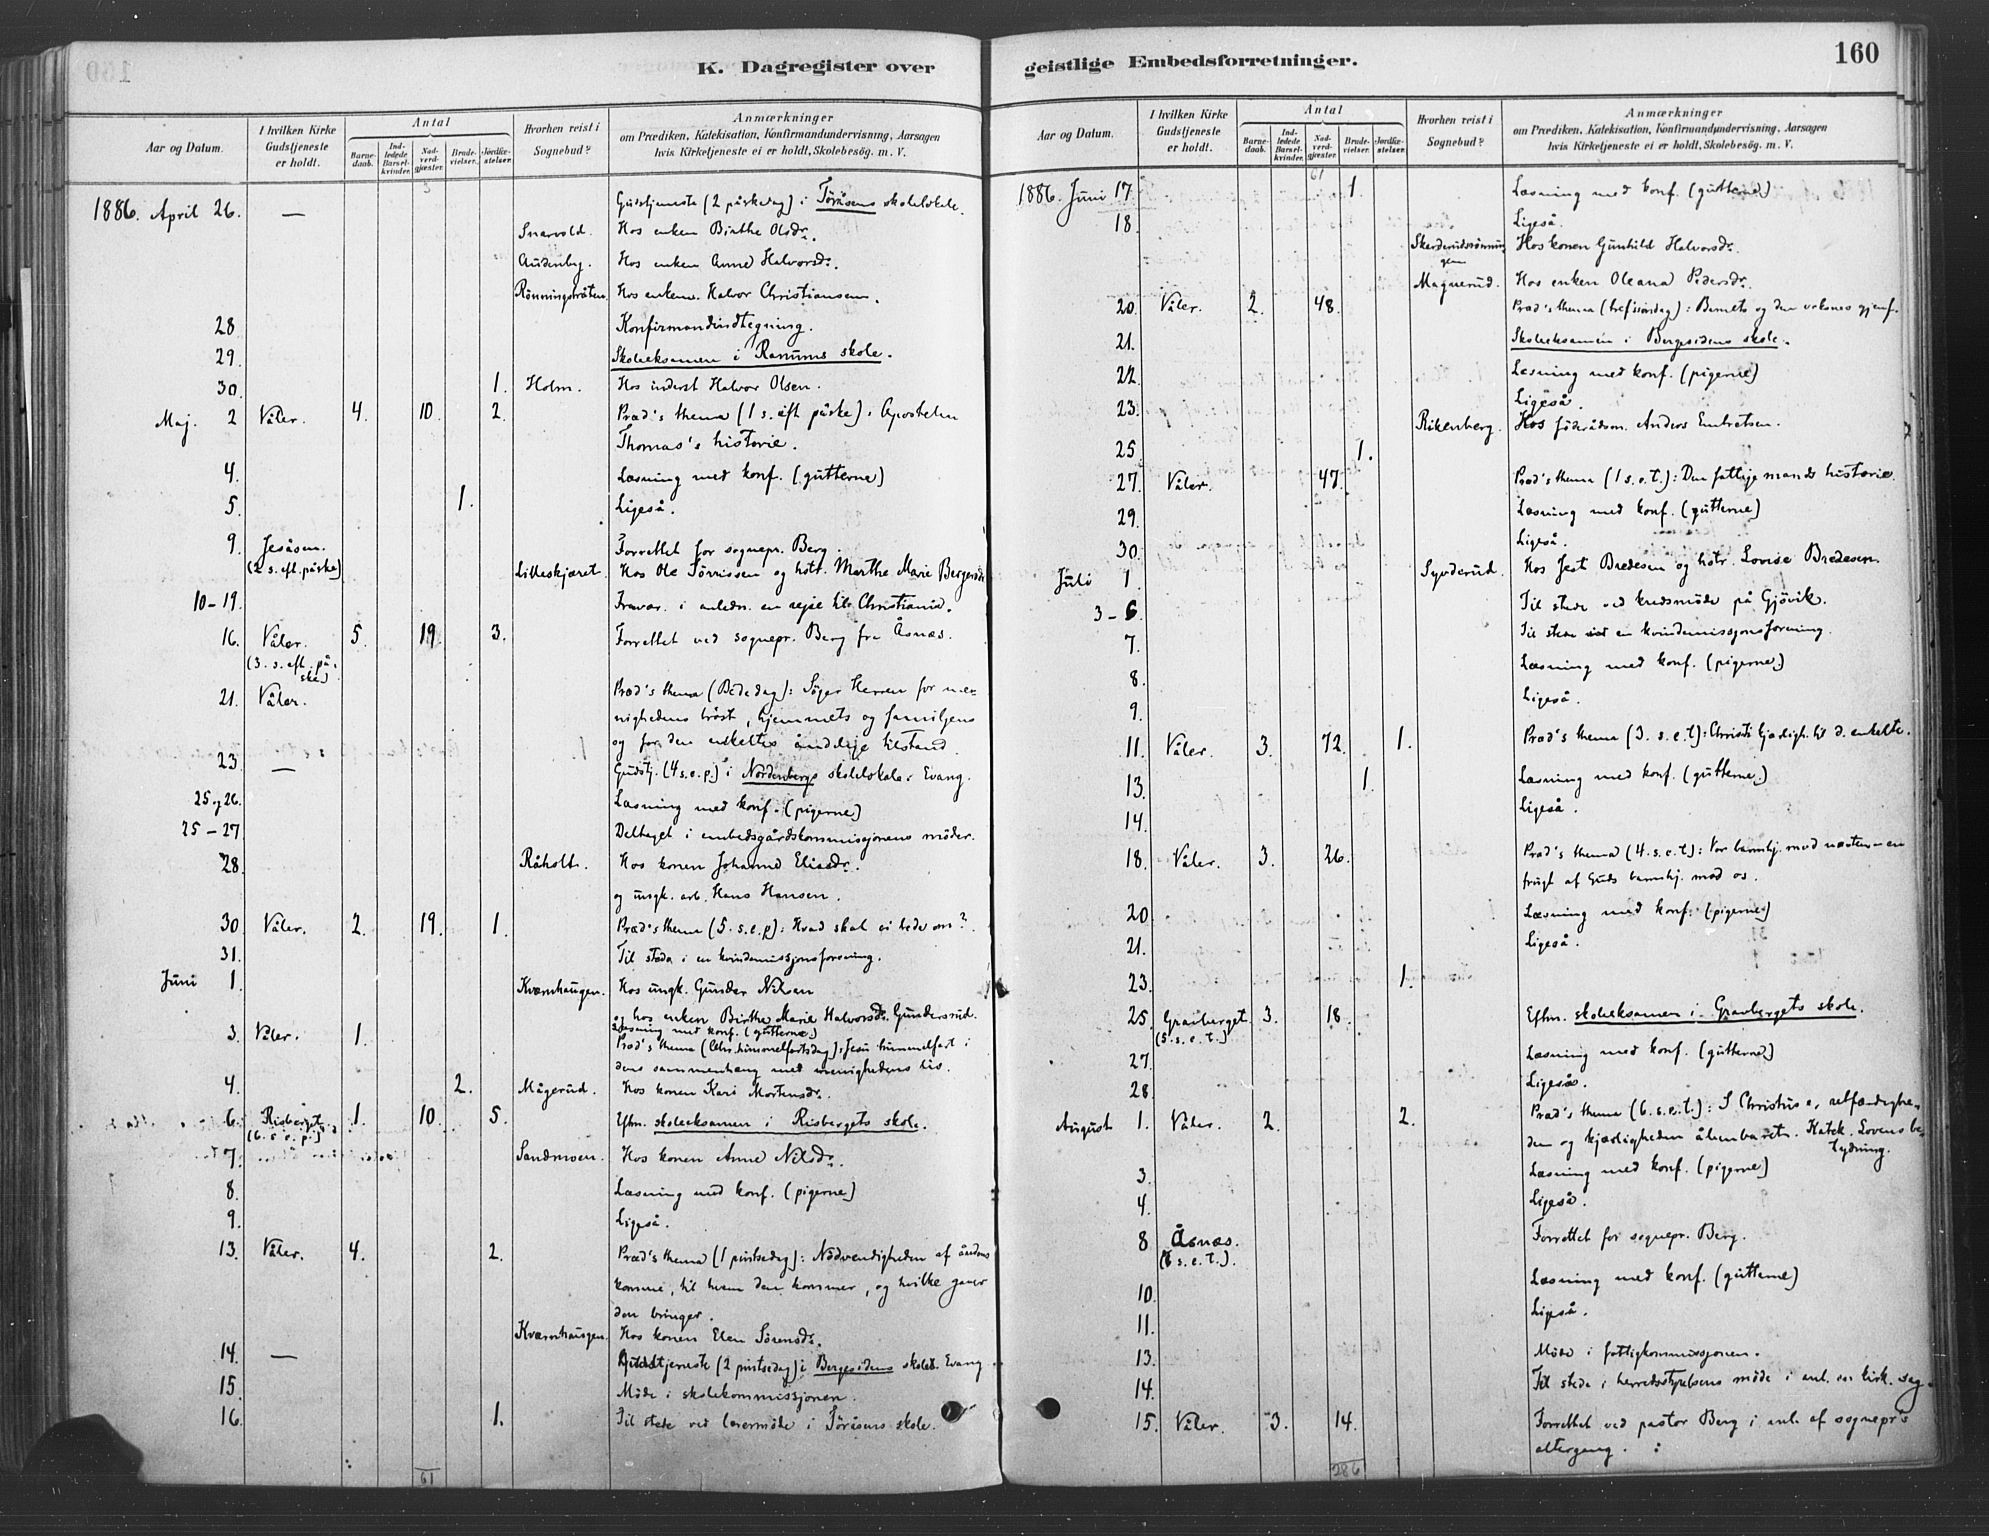 K. Dagregister over
Aar og Datum.
I hvilken Kirke Gudstjeneste er holdt.
Antal
Barnedaab.
Indledede Barselkvinder.
Nadverdgjæster.
Brudevielser.
Jordfæstelser.
Hvorhen reist i Sognebud?
Anmærkninger
om Prædiken, Katekisation, Konfirmandundervisning, Aarsagen
hvis Kirketjeneste ei er holdt, Skolebesög. m. V.
1886. April 26. — Gudstjeneste (2 påskedag) i Töråsens skolelokale.
Snarvold. Hos enken Birthe Olsdr.
Audenby. Hos enken Anne Halvorsdr.
Hos enkem. Halvor Christiansen.
28 Konfirmandindtegning.
29. Skoleeksamen i Ranums skole.
30. 1. Holm. Hos inderst Halvor Olsen.
Maj. 2 Våler. 4. 10. 2. Præd's thema (1 s. eft påske): Apostelen
Thomas's historie.
4. Læsning med konf. (gutterne)
5. 1. Ligeså.
9. Jesåsen. Forrettet for sognepr. Berg.
(2 s. eft. påske) Lilleskjæret. Hos Ole Törrissen og hstr. Marthe Marie Bergersdr
10-19. Fravær. i anledn. en rejse til Christiania.
16. Våler. 5. 19. 3. Forrettet ved sognepr. Berg fra Åsnæs.
(3. s. eft. påske)
21. Våler. Præd's thema (Bededag): Söger Herren for me-
nighedens tröst, hjemmets og familjens
og for den enkeltes åndelige tilstand.
23. — Gudstj. (4 s.e.p.) i Nordenbergs skolelokale. Evang.
25 og 26. Læsning med konf. (pigerne)
25-27 Deltaget i embedsgårdskommissjonens möder.
28. Råholt. Hos konen Johanne Eliasdr.
og ungk. arb. Hans Hansen.
30. Våler. 2. 19. 1. Præd's thema (5. s.e.p): Hvad skal vi bede om?
31. Til stede i en kvindemissjonsforening.
Juni 1. Kværnhaugen. Hos ungk. Gunder Nilsen
og hos enken Birthe Marie Halvorsdr. Gundersrud.
Læsning med konf. (gutterne)
3. Våler. 1. Præd's thema (Chr. himmelfartsdag): Jesu himmelfart i
dens sammenhæng med menighedens liv.
4. 2. Mågerud. Hos konen Kari Mortensdr.
6. Risberget. 1. 10. 5. Eftm. skoleeksamen i Risbergets skole.
(6. s. e. p.)
7. Sandmoen. Hos konen Anne Nilsdr.
8. Læsning med konf. (pigerne)
9. Ligeså.
13. Våler. 4. 2. Præd's thema (1 pintsedag): Nödvendigheden af åndens
komme, til hvem den kommer, og hvilke gaver
den bringer.
Kværnhaugen. Hos konen Elen Sörensdr.
14. — Gudstjeneste (2 pintsedag) i Bergesidens skolel. Evang.
15. Möde i skolekommissjonen.
16. 1. Til stede ved lærermöde i Töråsens skole.
61
geistlige Embedsforretninger.
160
Aar og Datum.
I hvilken Kirke Gudstjeneste er holdt.
Antal
Barnedaab.
Indledede Barselkvinder.
Nadverdgjæster.
Brudevielser.
Jordfæstelser.
Hvorhen reist i Sognebud?
Anmærkninger
om Prædiken, Katekisation, Konfirmandundervisning, Aarsagen
hvis Kirketjeneste ei er holdt, Skolebesög. m. V.
61
1886. Juni 17. 1. Læsning med konf. (gutterne)
18. Ligeså.
Hos konen Gunhild Halvorsdr.
Magnerud. Hos enken Oleana Pedersdr.
20. Våler. 2. 48. Præd's thema (trefssöndag): Barnets og den voksnes gjenf.
21. Skoleeksamen i Bergesidens skole.
22. Læsning med konf. (pigerne)
23. Ligeså.
Rikenberg. Hos föderådsm. Anders Embretsen.
25 1.
27. Våler. 47. Præd's thema (1 s.e.t.): Den fattige mands historie.
29. Læsning med konf. (gutterne)
30. Ligeså.
Juli 1 Syvderud. Hos Jest Bredesen og hstr. Lovise Bredesen
3-6 Til stede ved kredsmöde på Gjövik.
7. Til stede ved en kvindemissjonsforening.
8. Læsning med konf. (pigerne.)
9. Ligeså.
11. Våler. 3. 72. 1. Præd's thema (3. s.e.t): Christi kjærligh. til d. enkelte.
13. 1. Læsning med konf. (gutterne.)
14. Ligeså.
18. Våler. 3. 26. Præd's thema (4. s.e.t.): Vor barmhj. mod næsten en
frugt af Guds barmhj. mod os.
20. Læsning med konf. (pigerne)
21. Ligeså.
23. 1.
25. Gravberget. 3. 18. Eftm. skoleeksamen i Gravbergets skole.
(5. s. e. t.)
27. Læsning med konf. (gutterne)
28. Ligeså.
August 1. Våler. 2. 2. Præd's thema (6. s.e.t.): I Christus er retfærdighe-
den og kjærligheden åbenbaret. Katek. Lovens be-
tydning.
3. Læsning med konf. (pigerne)
4. Ligeså.
8 Åsnæs. Forrettet for sognepr. Berg.
(s. e. t.).
10. Læsning med konf. (gutterne)
11. Ligeså.
13. Möde i fattigkommissjonen.
14. Til stede i herredsstyrelsens möde i anl. en kirk. sag.
15. Våler. 3. 14. Forrettet ved pastor Berg i anl. af sognepr's
altergang.
286